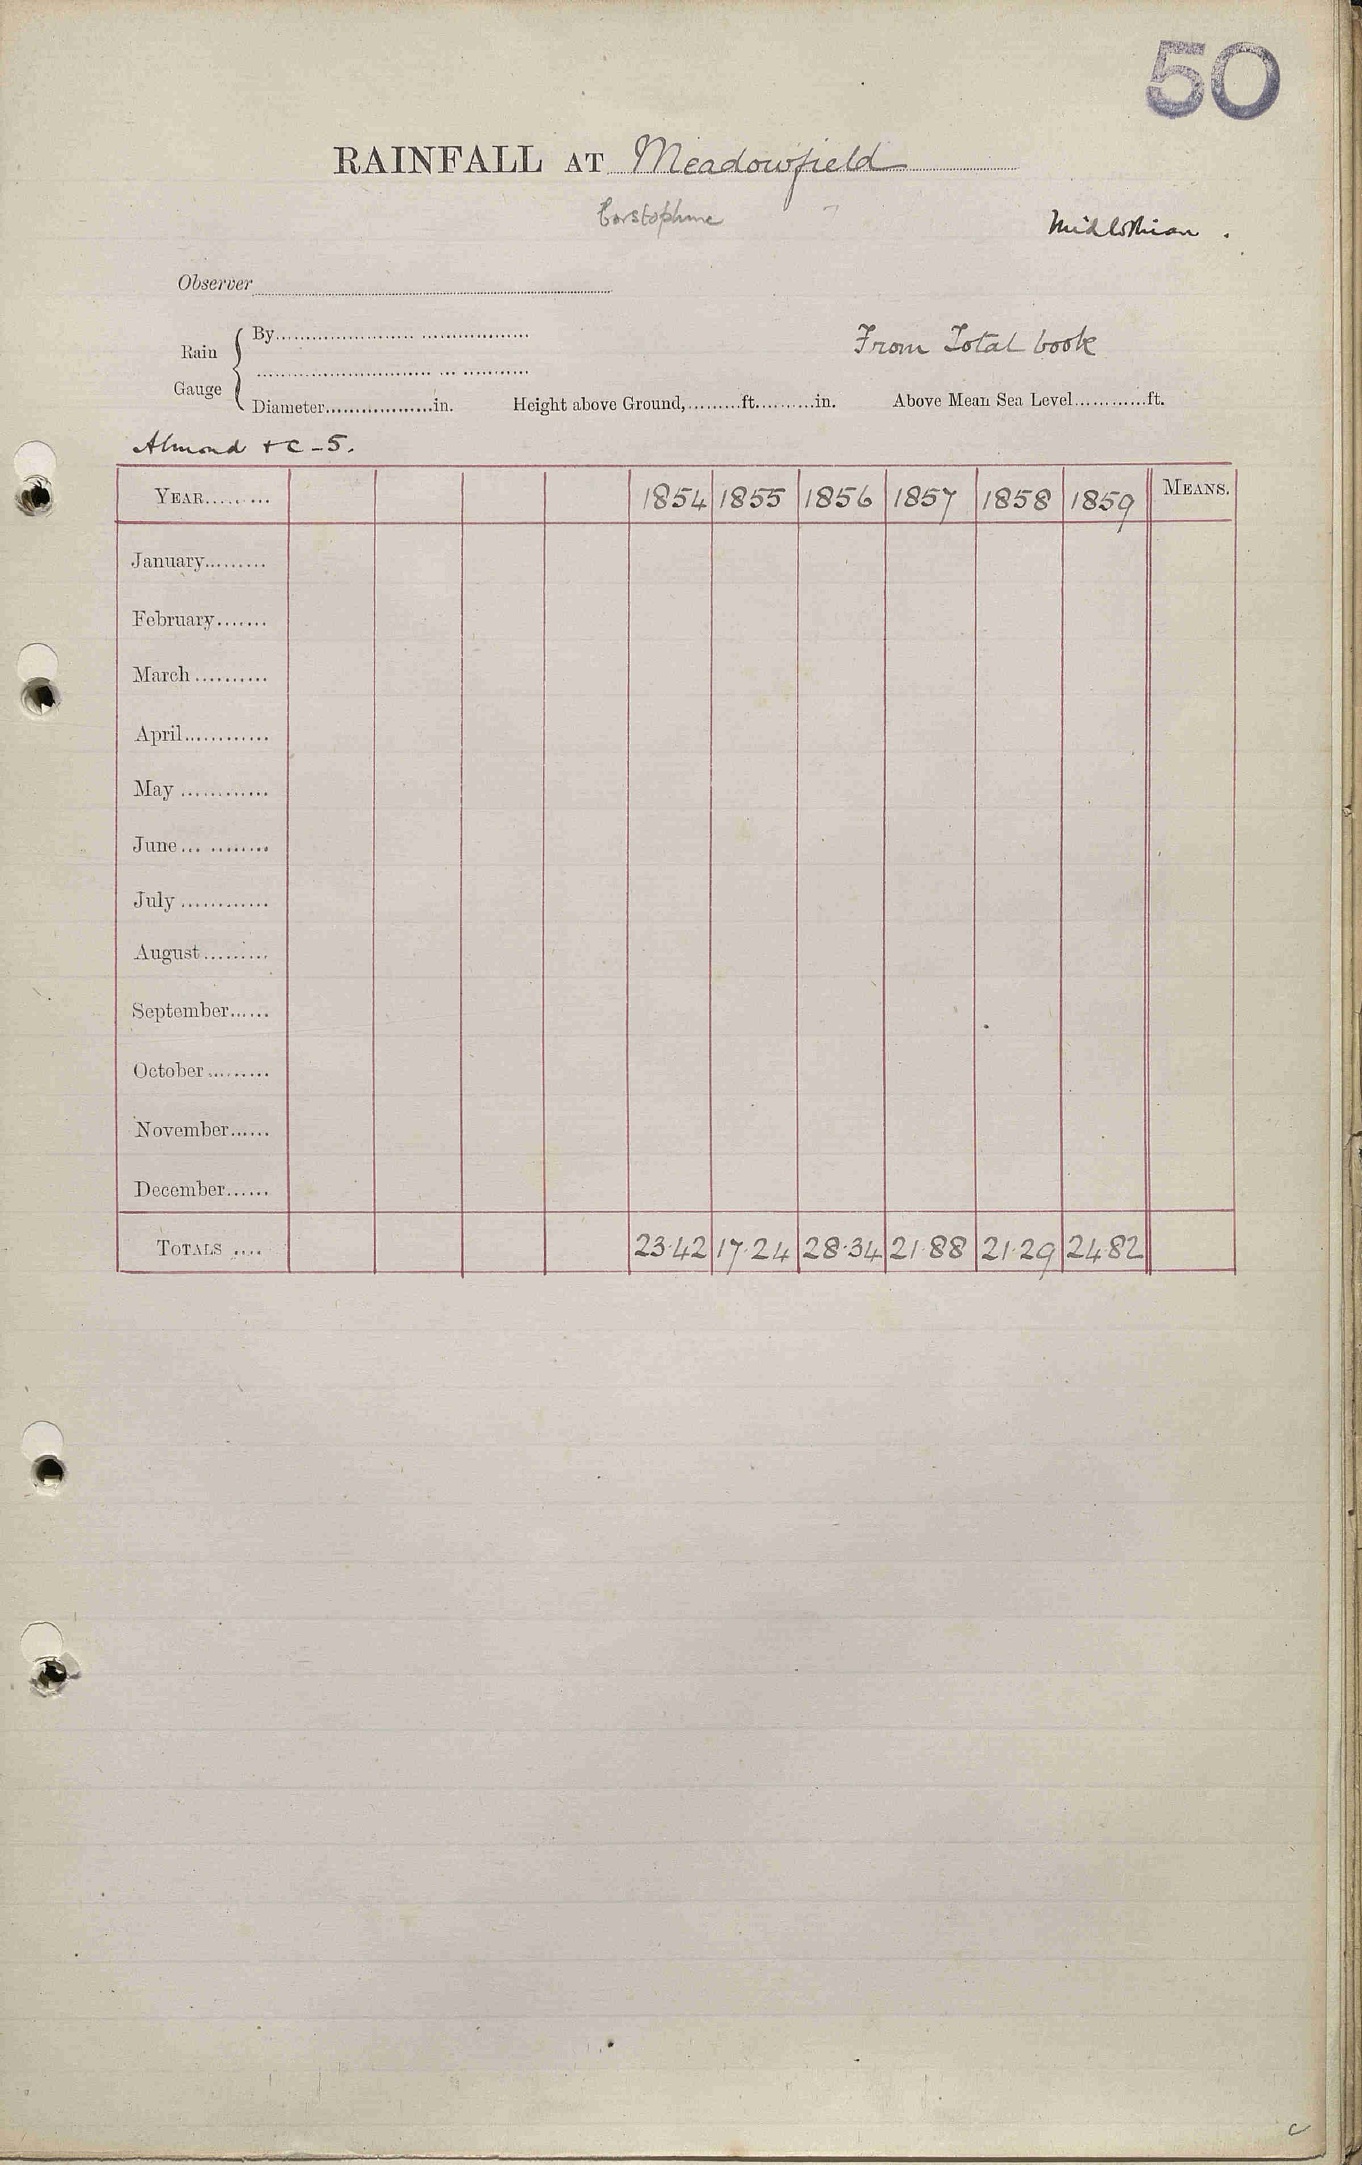 50
RAINFALL AT Meadowfield
Corstophine
Midlothian.
Observer
Rain Gauge { By
From Total book
Diameter..................in. Height above Ground,.........ft..........in. Above Mean Sea Level............ft.
Almond & C - 5.
YEAR......... 1854 1855 1856 1857 1858 1859 MEANS.
January.........
February.......
March..........
April............
May............
June... ........
July............
August.........
September......
October.........
November......
December......
TOTALS .... 23.42 17.24 28.34 21.88 21.29 24.82
c